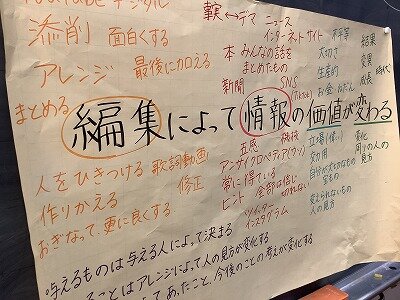 デジタル
添削 面白くする
アレンジ 最後に加える
まとめる
真実⟷デマ ニュース
インターネットサイト
本 みんなの話を
まとめたもの
新聞 SNS
不平等
大切さ
生産的
お金
結果
変異
成長 時代
編集によって情報の価値が変わる
人をひきつける 歌詞動画
作りかえる 修正
おぎなって、更に良くする
五感
アンサイクロペディア(ウソ)
常に得ている
ヒント 全部は信じ
切れない
ツイッター
インスタグラム
効用
自分が大切なもの
変えられないもの
人の見方
変化
周りの人の
見方
与えるものは与える人によって決まる
ることはアレンジによって人の見方が変化する
てあったこと、今後のことの考えが変化する